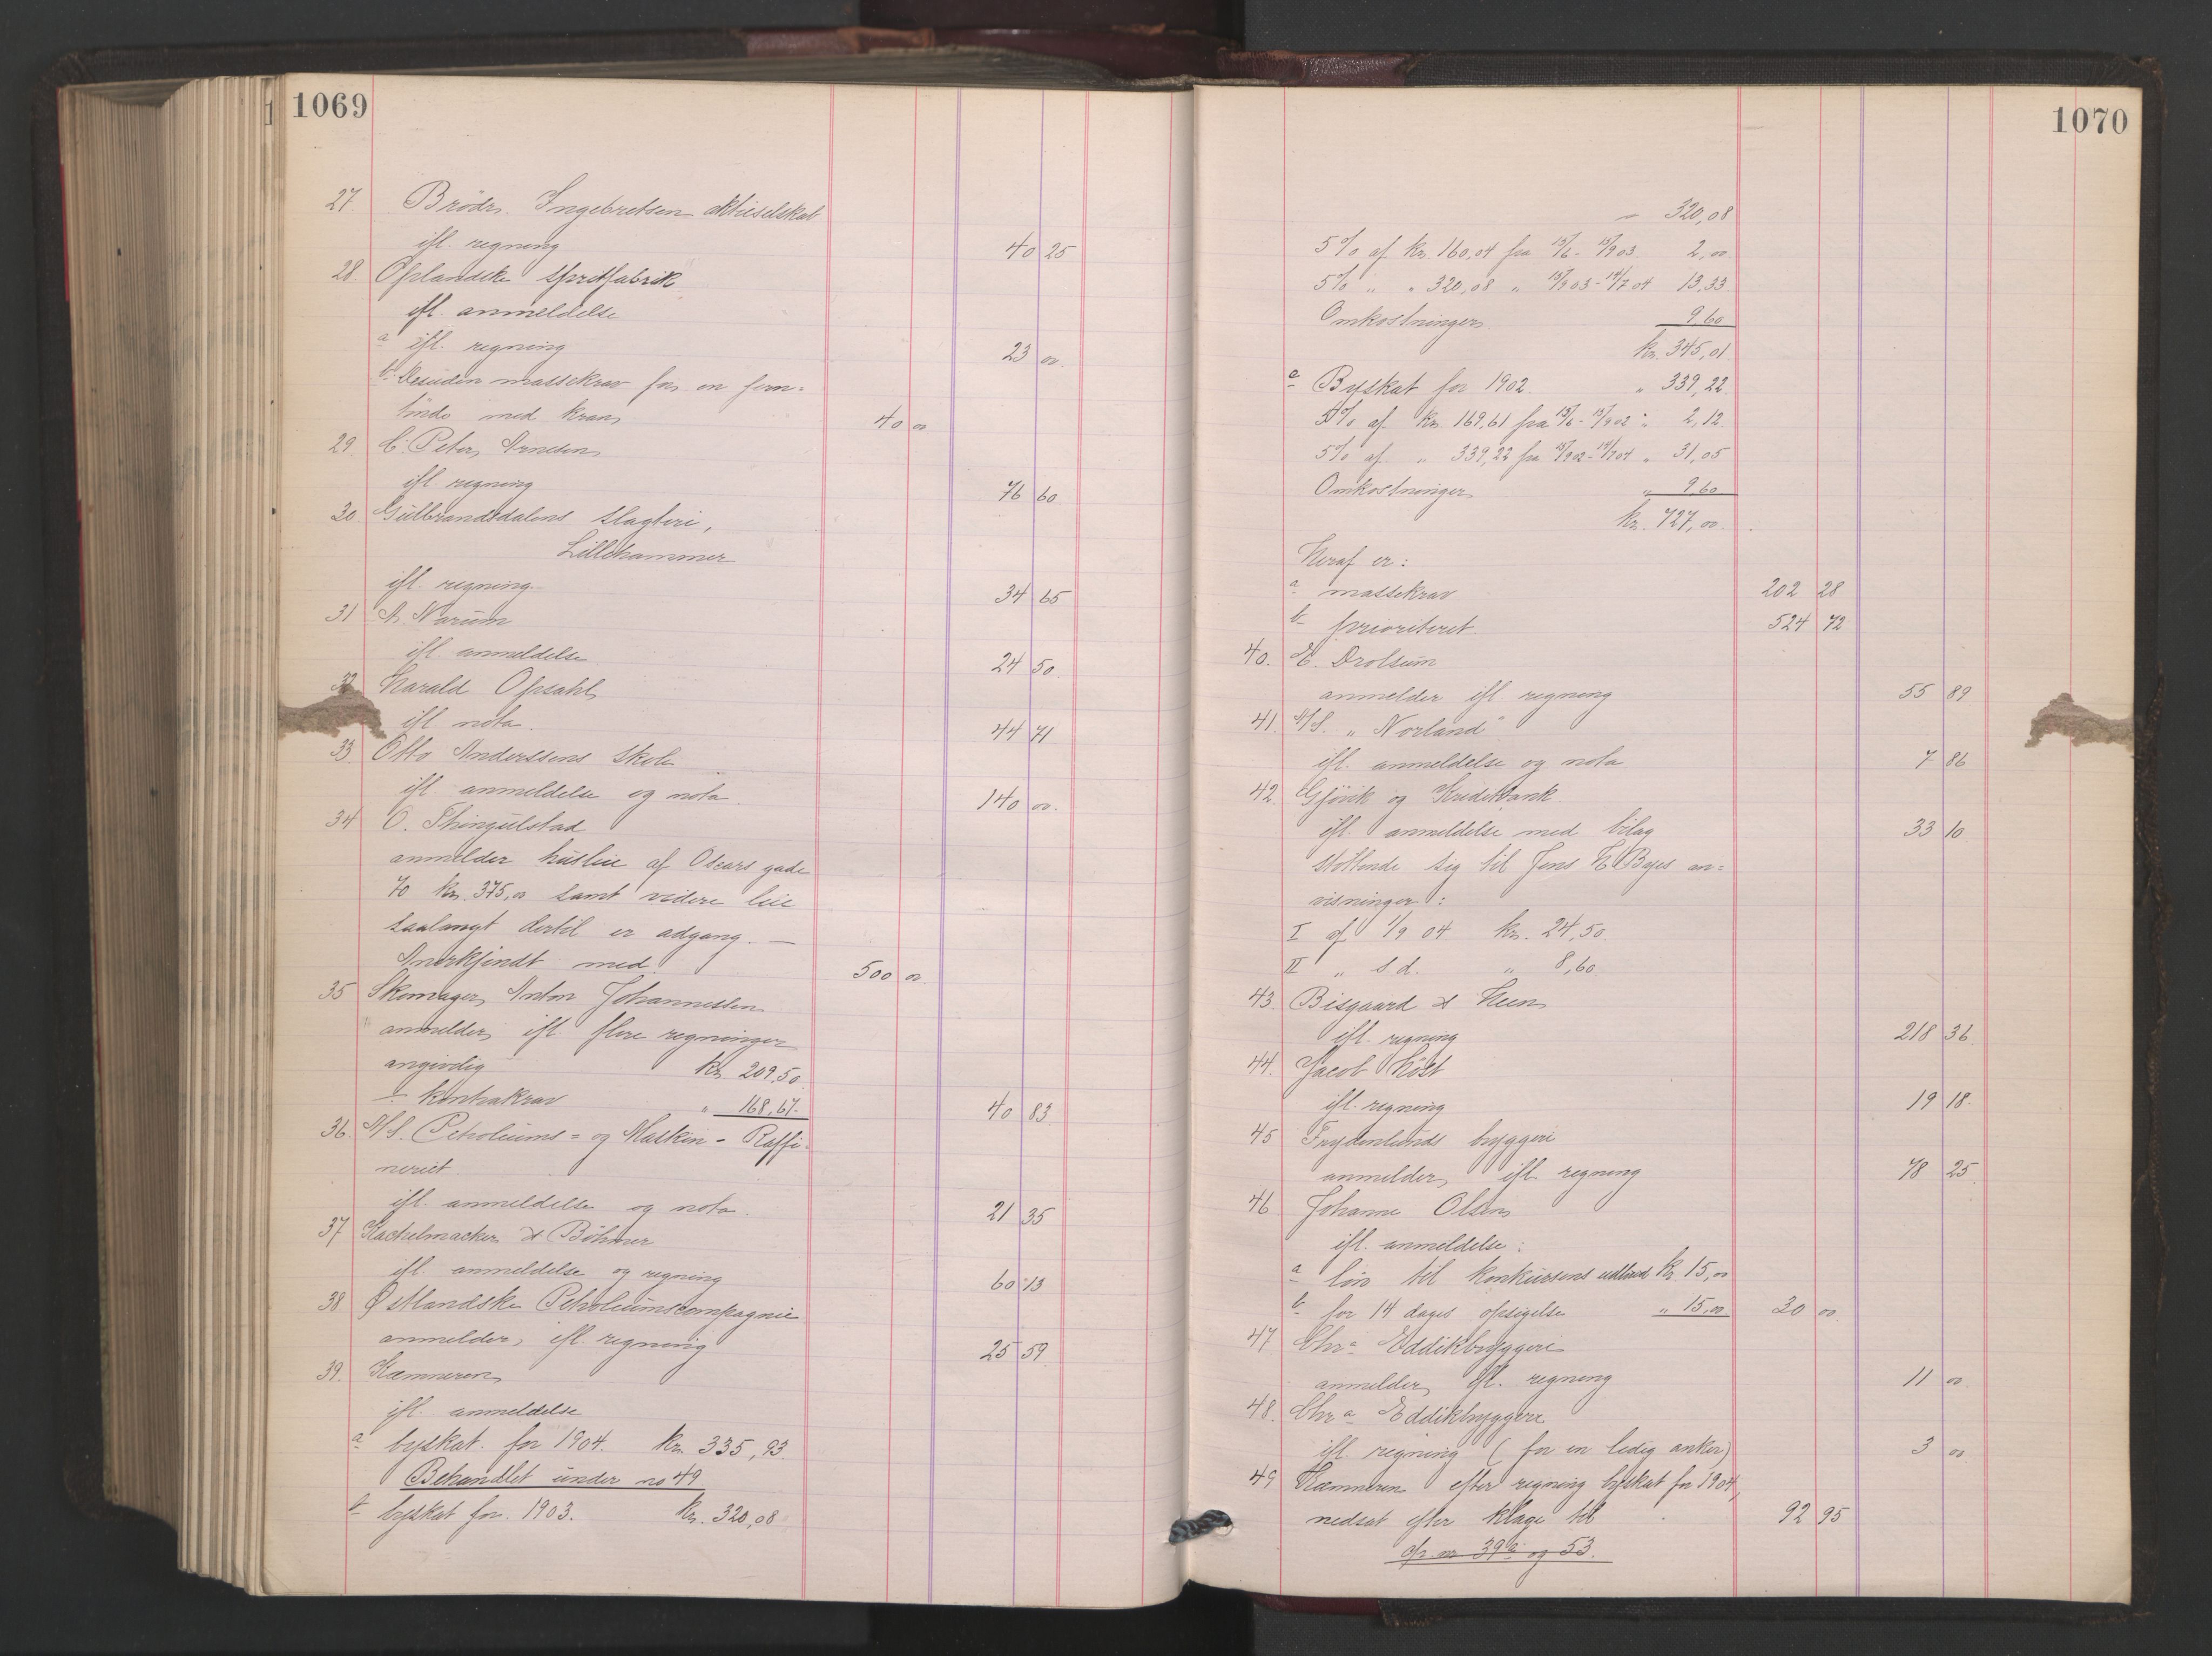 1069
27. Brödr. Ingebretsen aktieselskab
ifl. regning 40 25
28. Oplandske spritfabrik
ifl. anmeldelse
a ifl. regning 23 00
b. Desuden massekrav for en fern-
tönde med kran 40 00
29. C. Peter Arnesen
ifl. regning 76 60
30 Gulbrandsdalens slagteri,
Lillehammer
ifl. regning 34 65
31 A. Narum
ifl. anmeldelse 24 50
32 Harald Opsahl
ifl. nota 44 71
33 Otto Anderssens skole
ifl. anmeldelse og nota. 140 00.
34 O. Thingulstad
anmelder husleie af Oscars gade
70 kr. 375,00 samt videre leie
saalangt dertil er adgang. —
Anerkjendt med 500 00.
35 Skomager Anton Johannessen
anmelder ifl. flere regninger
angivelig kr. 209,50
÷ kontrakrav " 168,67 40 83
36. A/S. Petroleums- og Maskin- Raffi-
neriet
ifl. anmeldelse og nota. 21 35
37 Kachelmacker & Böhmer
ifl. anmeldelse og regning 60 13
38 Østlandske Petroleumscompagnie
anmelder, ifl. regning 25 59
39. Kæmneren
ifl. anmeldelse
a byskat. for 1904. kr. 335,93
Behandlet under no 49
b byskat for. 1903. kr. 320,08
1070
320,08
5% af kr. 160,04 fra 15/6 - 15/9 03. 2,00
5% " " 320,08 " 15/9 03 - 14/7 04 13,33
Omkostninger 9,60
kr. 345,01
c Byskat for 1902. " 339,22
5% af kr. 169,61 fra 15/6 - 15/9 02 " 2,12.
5% af " 339,22 fra 15/9 02 - 14/7 04 " 31,05
Omkostninger " 9,60
kr. 727,00.
Heraf er:
a massekrav 202 28
b prioriteret 524 72
40. E. Drolsum
anmelder ifl regning 55 89
41. A/S. "Norland"
ifl. anmeldelse og nota 7 86
42. Gjövik og Kreditbank.
ifl. anmeldelse med bilag 33 10
støttende sig til Jens H. Byes an-
visninger:
I af 1/9 04 kr. 24,50
II " s.d. " 8,60
43 Bisgaard & Heen
ifl. regning 218 36
44. Jacob Höst
ifl. regning 19 18.
45 Frydenlunds bryggeri
anmelder, ifl. regning 78 25
46 Johanne Olsen
ifl. anmeldelse:
a lön til konkursens udbrud kr. 15,00
b for 14 dages opsigelse " 15,00 30 00.
47 Chr.a Eddikbryggeri
anmelder, ifl. regning 11 00
48. Chr.a Eddikbryggeri
ifl. regning (for en ledig anker) 3 00
49 Kæmneren efter regning byskat for 1904,
nedsat efter klage til 92 95
cfr. no 39a og 53.